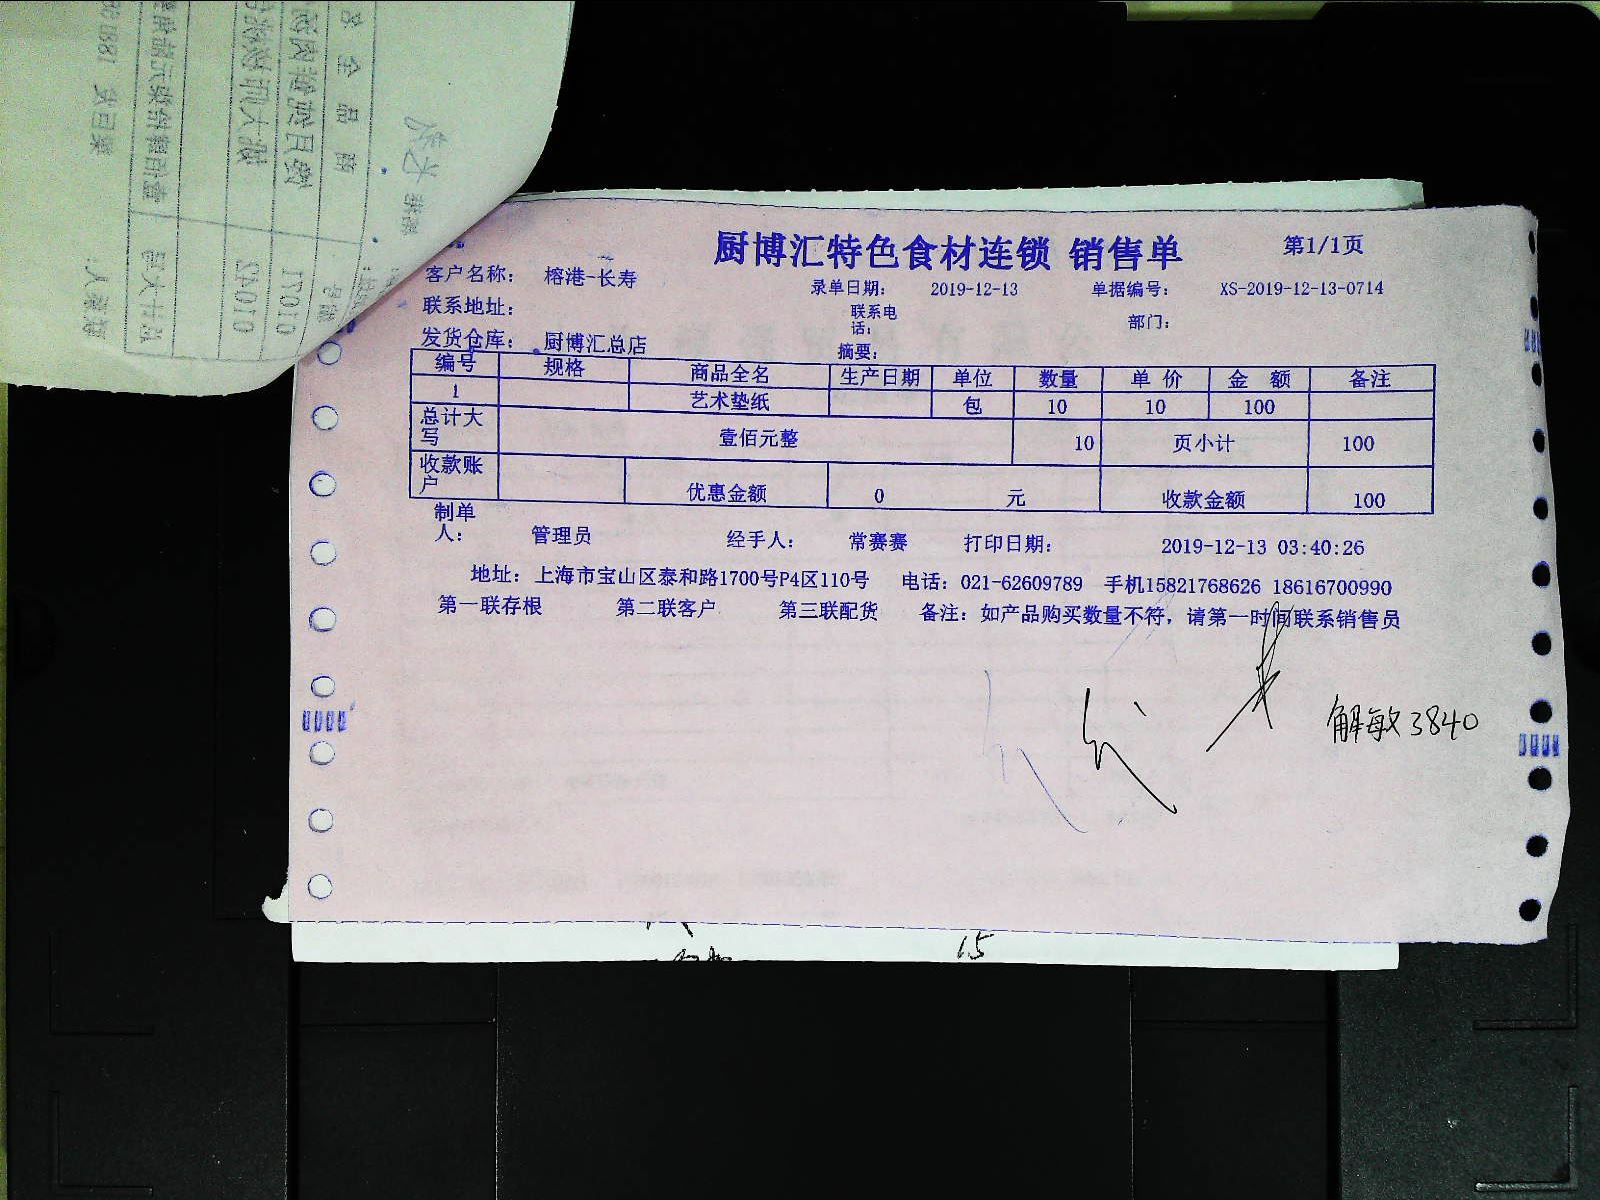 厨博汇特色食材连锁 销售单 第1/1页
客户名称： 榕港-长寿 录单日期： 2019-12-13 单据编号： XS-2019-12-13-0714
联系地址： 联系电话： 部门：
发货仓库： 厨博汇总店 摘要：
编号 规格 商品全名 生产日期 单位 数量 单 价 金 额 备注
1 艺术垫纸 包 10 10 100
总计大写 壹佰元整 10 页小计 100
收款账户 优惠金额 0 元 收款金额 100
制单人： 管理员 经手人： 常赛赛 打印日期： 2019-12-13 03:40:26
地址：上海市宝山区泰和路1700号P4区110号 电话：021-62609789 手机15821768626 18616700990
第一联存根 第二联客户 第三联配货 备注：如产品购买数量不符，请第一时间联系销售员
解敏3840
15